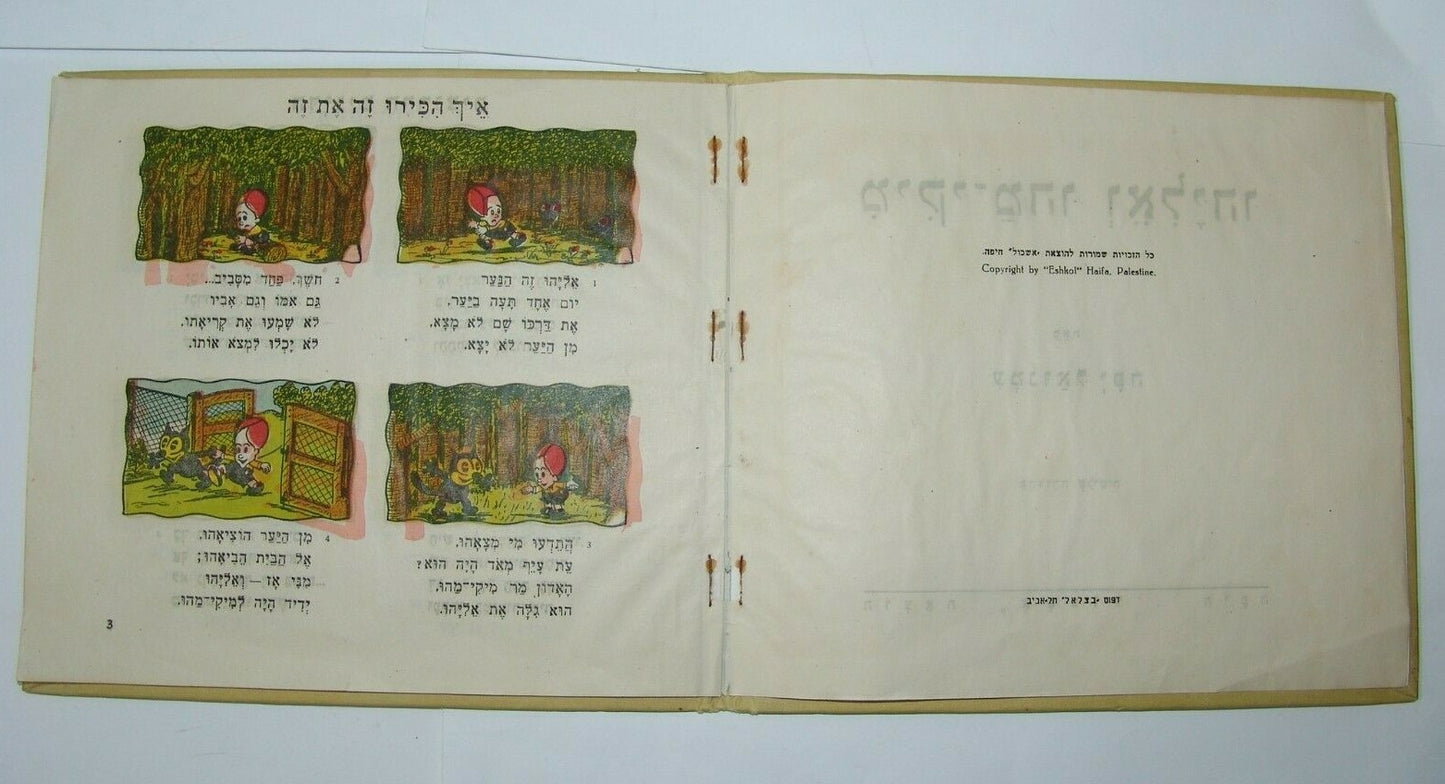 כל הזכויות שמורות להוצאת "אשכול" חיפה.
Copyright by "Eshkol" Haifa, Palestine.
דפוס "בצלאל" תל-אביב
אֵיךְ הִכִּירוּ זֶה אֶת זֶה
1 אֵלִיָּהוּ זֶה הַנַּעַר
יוֹם אֶחָד תָּעָה בַיַּעַר.
אֶת דַּרְכּוֹ שָׁם לֹא מָצָא,
מִן הַיַּעַר לֹא יָצָא.
2 חשֶׁךְ, פַּחַד מִסָּבִיב...
גַּם אִמּוֹ וְגַם אָבִיו
לֹא שָׁמְעוּ אֶת קְרִיאָתוֹ.
לֹא יָכְלוּ לִמְצֹא אוֹתוֹ.
3 הֲתֵדְעוּ מִי מְצָאָהוּ.
עֵת עָיֵף מְאֹד הָיָה הוּא?
הָאָדוֹן מַר מִיקִי־מַהוּ.
הוּא גִלָּה אֶת אֵלִיָּהוּ.
4 מִן הַיַּעַר הוֹצִיאָהוּ.
אֶל הַבַּיִת הֱבִיאָהוּ;
מִנִּי אָז — וְאֵלִיָּהוּ
יְדִיד הָיָה לְמִיקִי־מַהוּ.
3